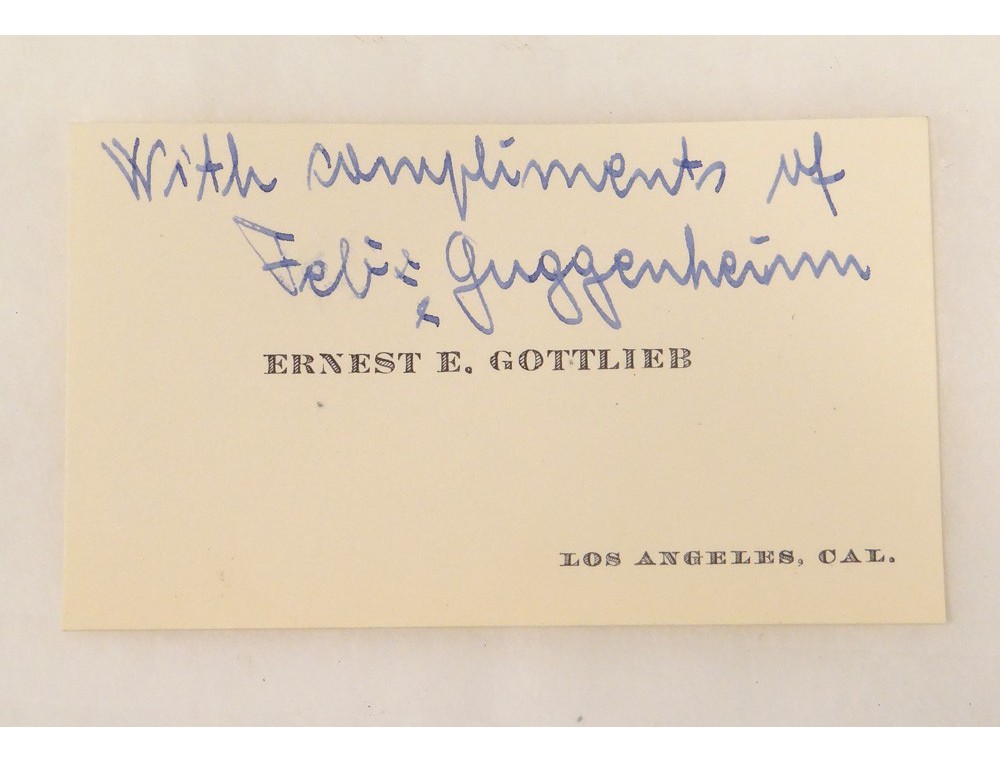 With compliments of
Felix Guggenheim
ERNEST E. GOTTLIEB
LOS ANGELES, CAL.